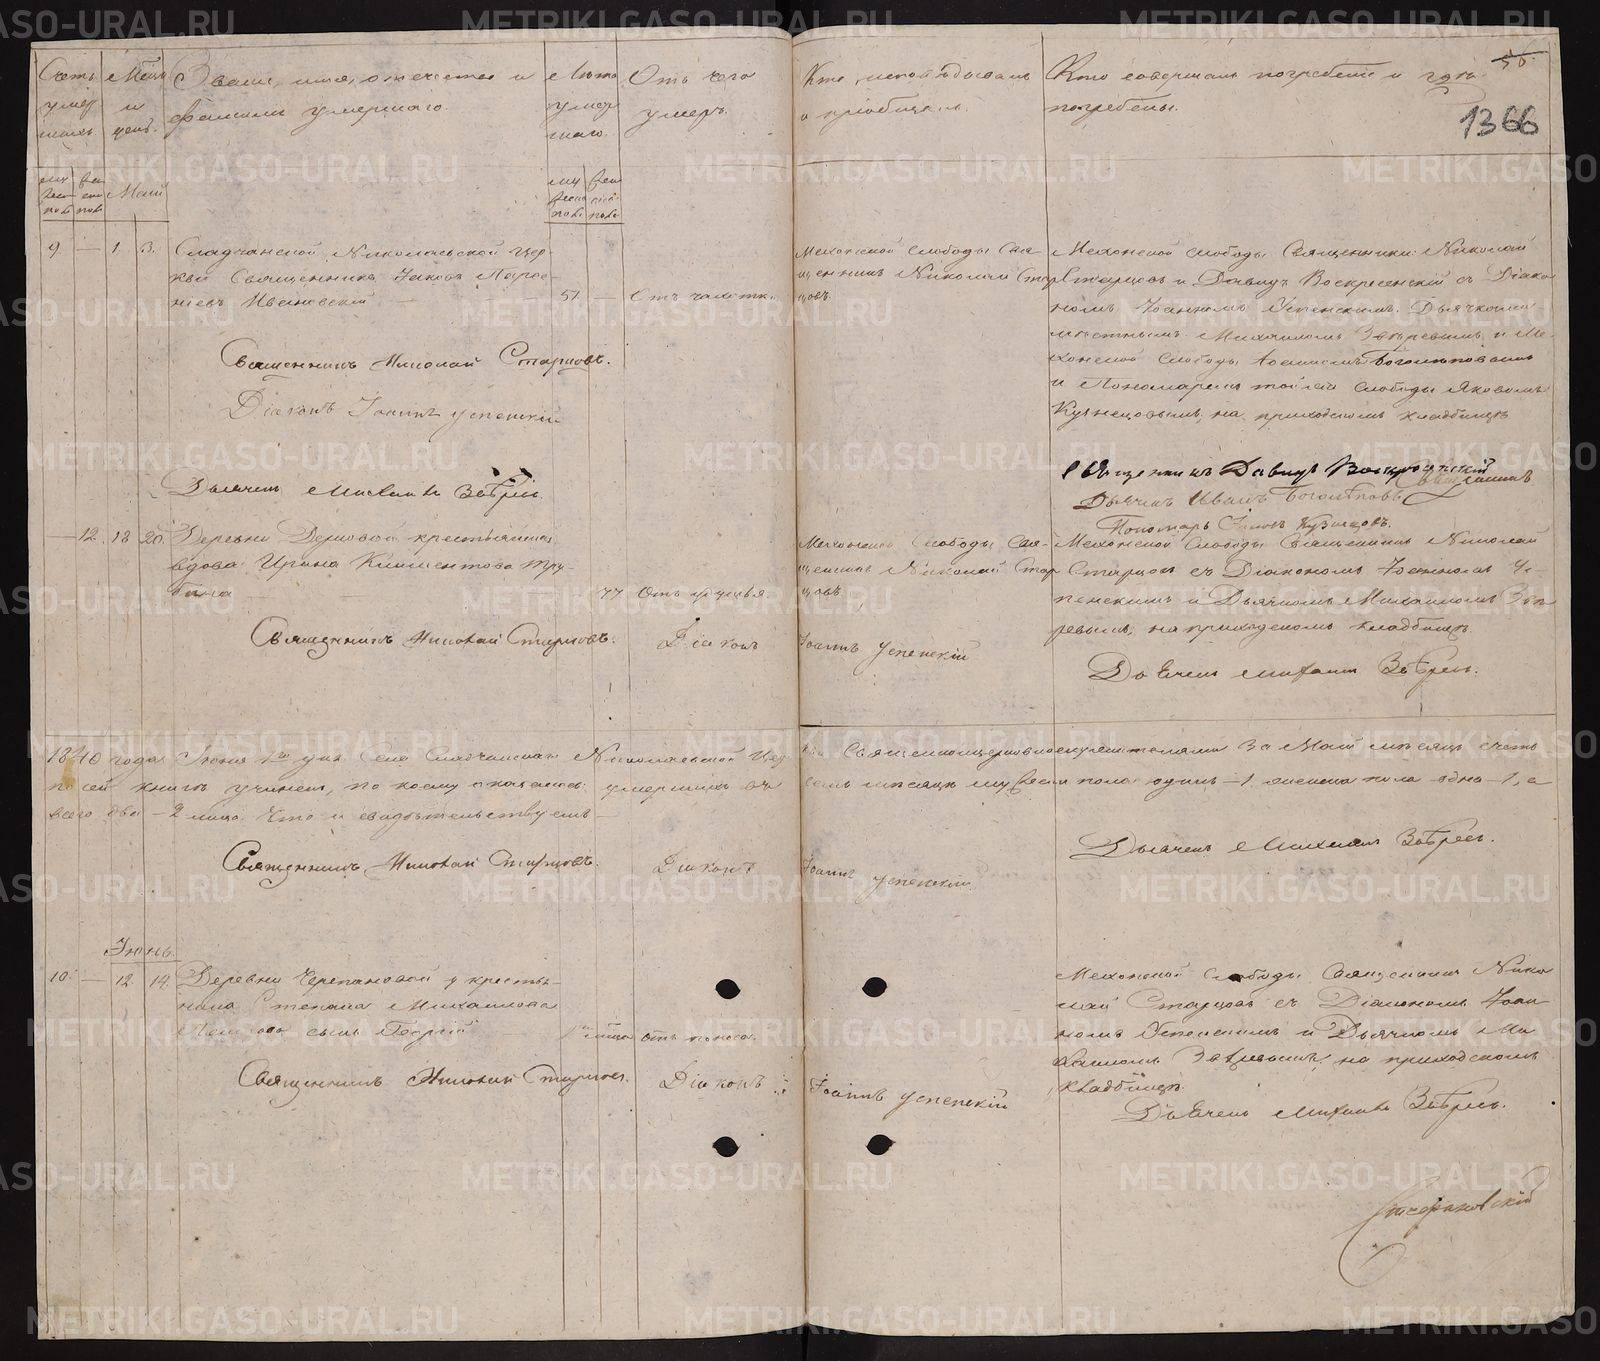 Счетъ умершихъ
Мѣсяцъ и день
Званіе, имя, отчество и
фамилія умершаго.
Лѣта умершаго.
Отъ чего
умеръ.
Кто исповѣдывалъ
и пріобщалъ.
Кто совершалъ погребеніе и гдѣ
погребены.
1366
Май
9 — 1. 3. Сладчанской Николаевской цер-
кви Священника Іакова
Ивановскій 57 — Отъ чахотки
Мехонской Слободы Свя-
щенникъ Николай Стар
цовъ.
Мехонской Слободы Священники Николай
Старцовъ и Давидъ Воскресенскій съ Діако
номъ Іоанномъ Успенскимъ, Дьячкомъ
мѣстнымъ Михаиломъ Звѣревымъ и Ме-
хонской Слободы Боголѣповымъ
и Пономаремъ той же Слободы Яковомъ
Кузнецовымъ, на приходскомъ кладбищѣ
Священникъ Николай Старцовъ.
Діаконъ Іоаннъ Успенскій
Дьячекъ Михаилъ Звѣревъ
Священникъ Давидъ Воскресенскій
Дьячекъ Иванъ Боголѣповъ
Пономарь Кузнецовъ.
— 12. 18 20. Деревни крестьянская
вдова Ирина Климентова Тру-
бина 77 Отъ удушья
Мехонской Слободы Свя-
щенникъ Николай Стар
цовъ
Мехонской Слободы Священникъ Николай
Старцовъ съ Діакономъ Іоанномъ Ус-
пенскимъ и Дьячкомъ Михаиломъ Звѣ-
ревымъ, на приходскомъ кладбищѣ.
Священникъ Николай Старцовъ. Діаконъ Іоаннъ Успенскій
Дьячекъ Михаилъ Звѣревъ.
1840 года Іюня 1го дня Села Сладчанскаго Николаевской Цер
кви Священноцерковнослужителями за Май мѣсяцъ счетъ
по сей книгѣ учиненъ, по коему оказалось: умершихъ въ
семъ мѣсяцѣ мужеска пола одинъ — 1. женска пола одна — 1, а
всего два — 2 лица. Что и свидѣтельствуемъ —
Священникъ Николай Старцовъ. Діаконъ Іоаннъ Успенскій
Дьячекъ Михаилъ Звѣревъ.
Іюнь.
10. — 12 14. Деревни Черепановой у крестья-
нина Степана Михайлова
сынъ Георгій отъ поноса.
Мехонской Слободы Священникъ Нико
лай Старцовъ съ Діакономъ Іоан
номъ Успенскимъ и Дьячкомъ Ми
хаиломъ Звѣревымъ, на приходскомъ
кладбищѣ.
Священникъ Николай Старцовъ. Діаконъ Іоаннъ Успенскій
Дьячекъ Михаилъ Звѣревъ.
METRIKI.GASO-URAL.RU